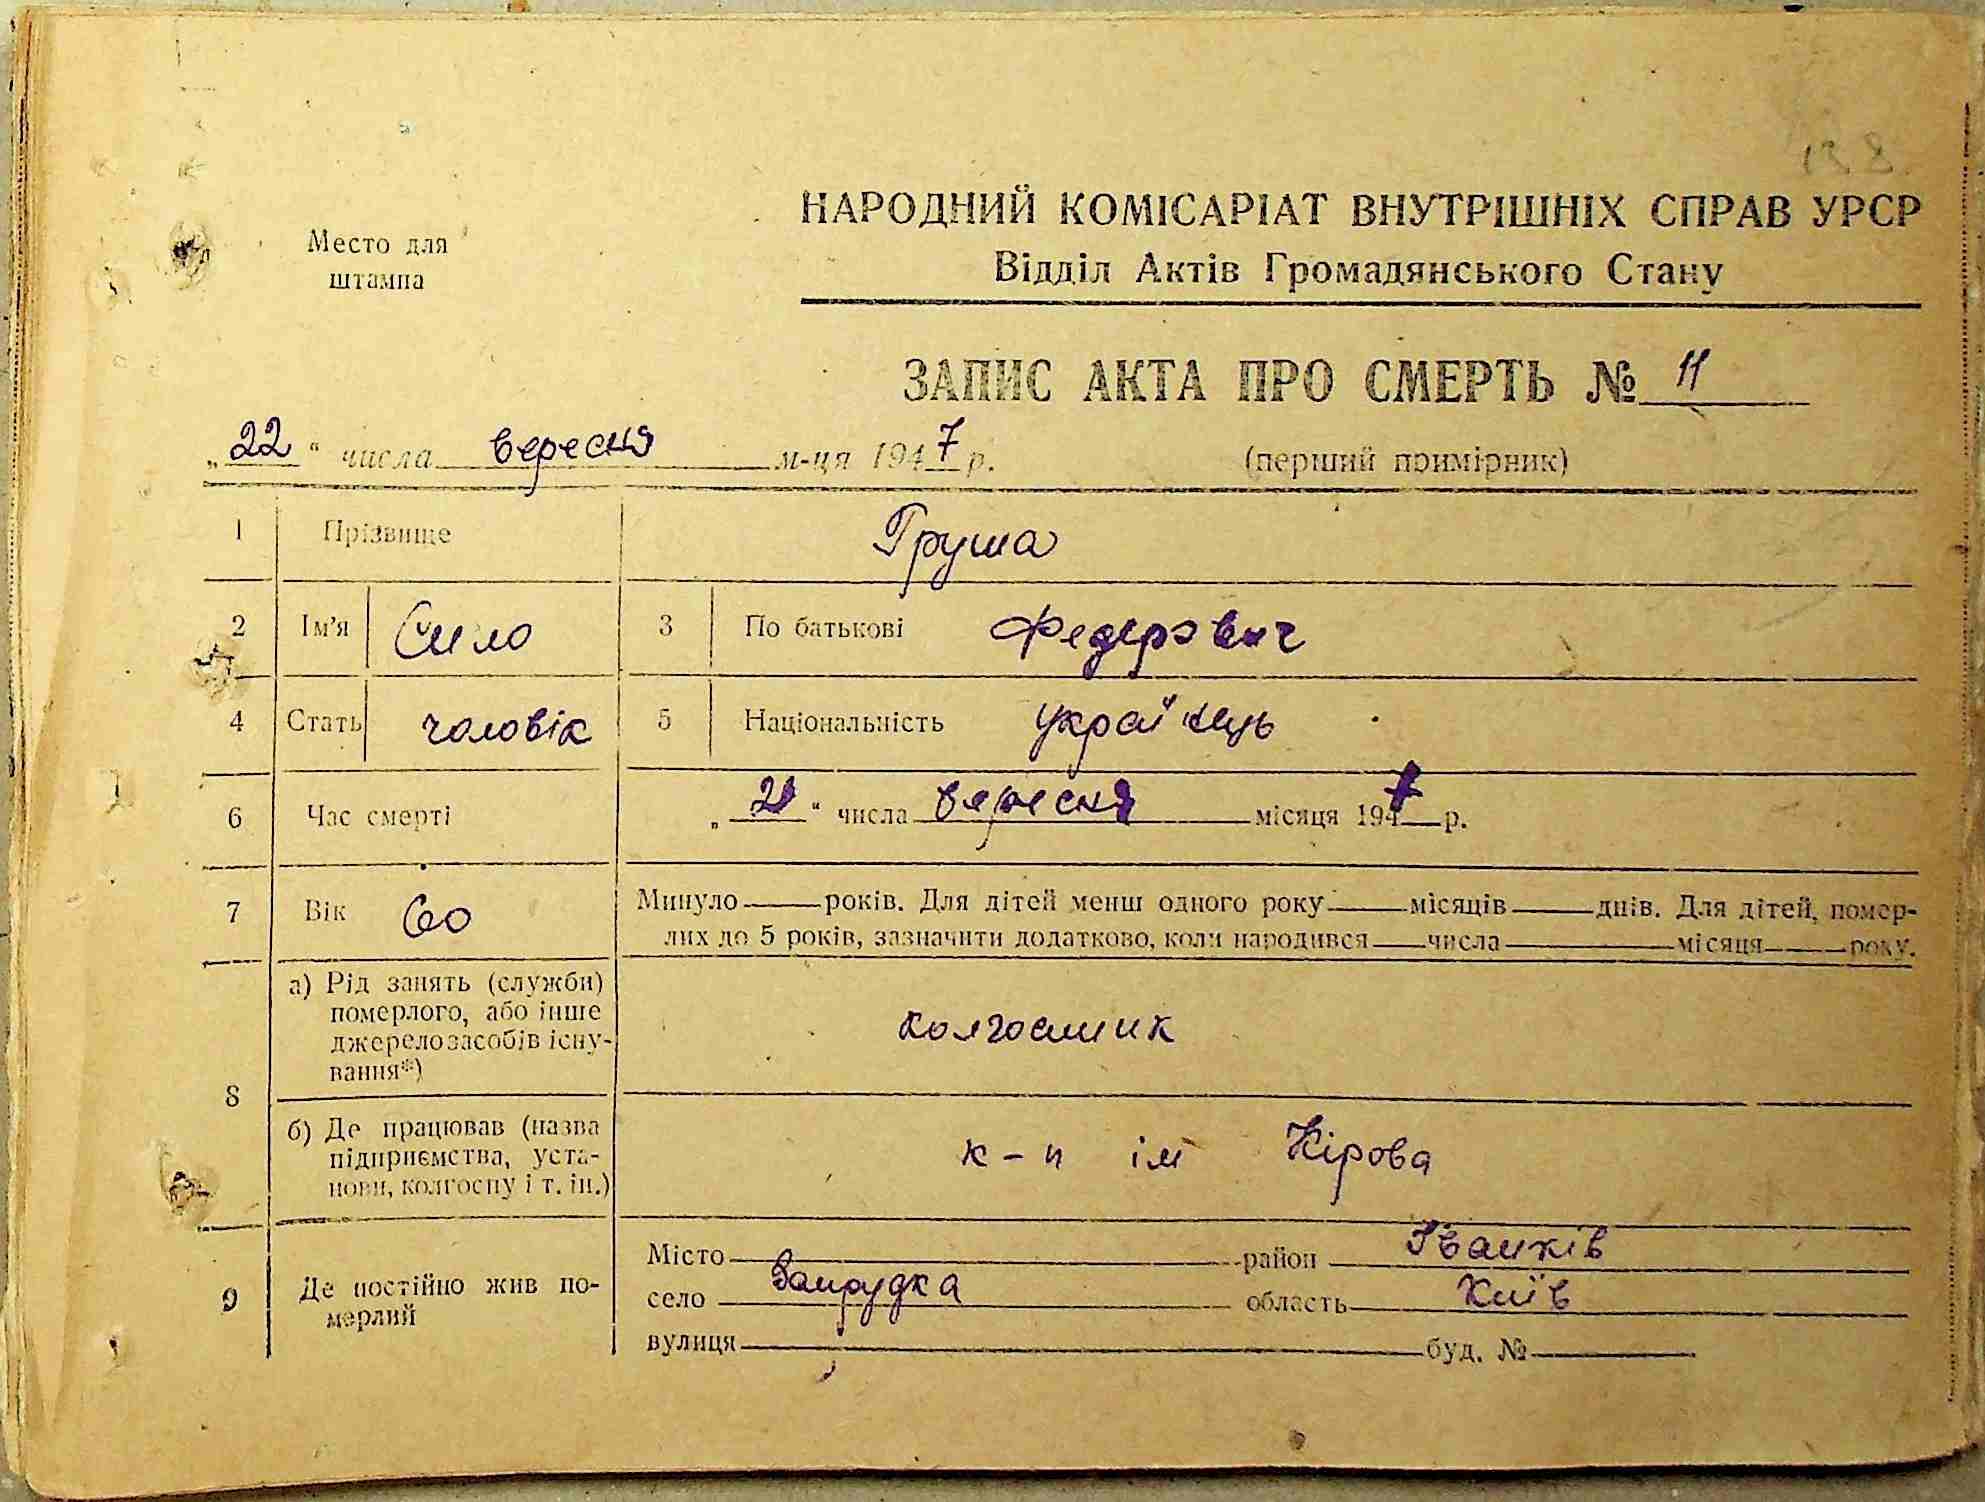 138.
Место для
штампа
НАРОДНИЙ КОМІСАРІАТ ВНУТРІШНІХ СПРАВ УРСР
Відділ Актів Громадянського Стану
ЗАПИС АКТА ПРО СМЕРТЬ № 11
„22“ числа вересня м-ця 1947 р. (перший примірник)
1 Прізвище Груша
2 Ім'я Сило 3 По батькові Федерович
4 Стать чоловік 5 Національність українець
6 Час смерті „21“ числа вересня місяця 1947 р.
7 Вік 60 Минуло — років. Для дітей менш одного року — місяців — днів. Для дітей, помер-
лих до 5 років, зазначити додатково, коли народився — числа — місяця — року.
8 а) Рід занять (служби)
померлого, або інше
джерело засобів існу-
вання*)
колгоспник
б) Де працював (назва
підприємства, уста-
нови, колгоспу і т. ін.)
к-п ім Кірова
9 Де постійно жив по-
мерлий
Місто район Іванків
село Запрудка область Київ
вулиця буд. №